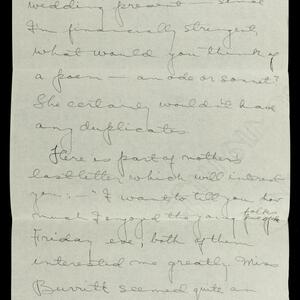 wedding present — since
I'm financially stringent,
what would you think of
a poem — an ode or sonnet?
She certainly wouldn't have
any duplicates.
Here is part of mother's
last letter which will interest
you: — "I want to tell you how
much I enjoyed the young folks
Friday eve, both of them
interested me greatly. Miss
Burritt seemed quite an